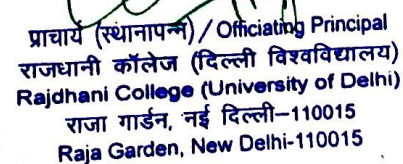 प्राचार्य (स्थानापन्न) / Officiating Principal
राजधानी कॉलेज (दिल्ली विश्वविद्यालय)
Rajdhani College (University of Delhi)
राजा गार्डन, नई दिल्ली–110015
Raja Garden, New Delhi-110015